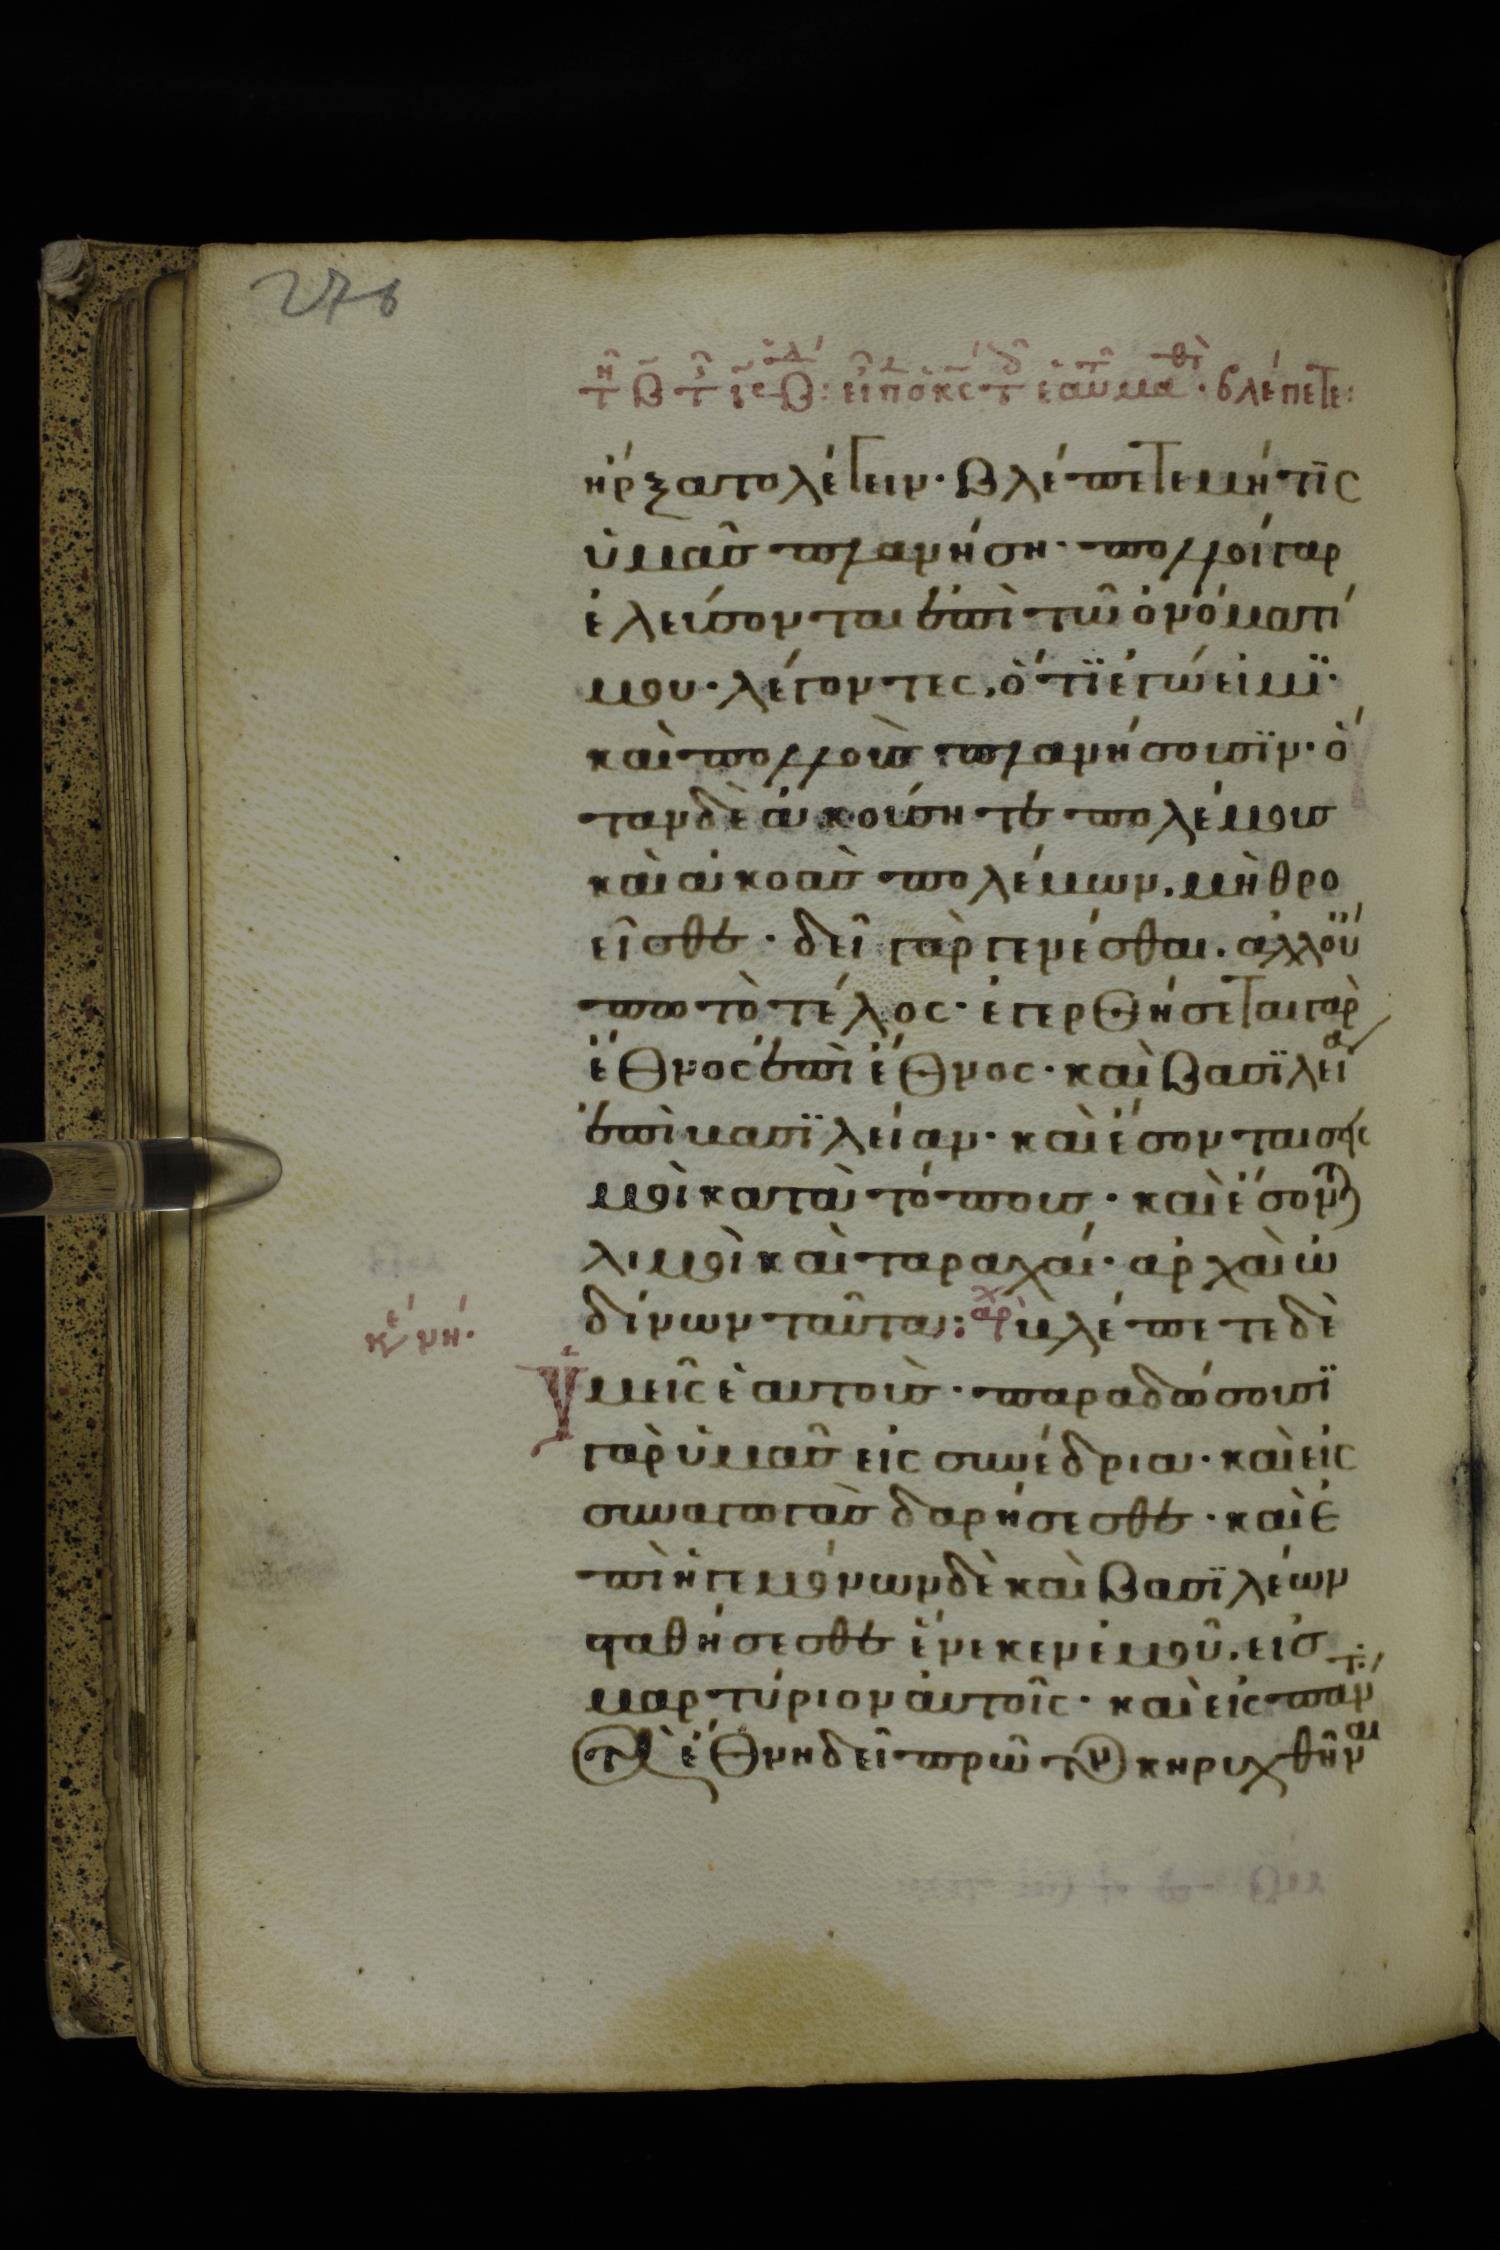 276
βλέπετε:
ἤρξατο λέγειν· Βλέπετε μή τϊς
ὑμᾶς πλανήση· πολλοί γαρ
ἐλεύσονται ἐπὶ τῶ ὀνόματί
μου· λέγοντες, ὅτϊ ἐγώ εἰμϊ·
καὶ πολλοὺς πλανήσουσϊν· ὅ
ταν δὲ ἀκούσητε πολέμους
καὶ ἀκοὰς πολέμων, μὴ θρο
εῖσθε· δεῖ γὰρ γενέσθαι. ἀλλ οὔ
πω τὸ τέλος· ἐγερθήσεται γαρ
ἔθνος ἐπὶ ἔθνος· καὶ Βασϊλεία
ἐπὶ βασϊλείαν· καὶ ἔσονται σεισ
μοὶ κατὰ τόπους· καὶ ἔσονται
λιμοὶ καὶ ταραχαί· ἀρχαὶ ὠ
δίνων ταῦτα: αρχ βλέπετε δὲ
κε νη·
Ὑμεῖς ἑαυτοὺς· παραδώσουσϊ
γὰρ ὑμᾶς εἰς συνέδρια· καὶ εἰς
συναγωγὰς δαρήσεσθε· καὶ ἐ
πὶ ἡγεμόνων δὲ καὶ Βασϊλέων
σταθήσεσθε ἕνεκεν ἐμοῦ, εἰς
μαρτύριον αὐτοῖς· καὶ εἰς πάντα
τὰ ἔθνη δεῖ πρῶτον κηρυχθῆναι